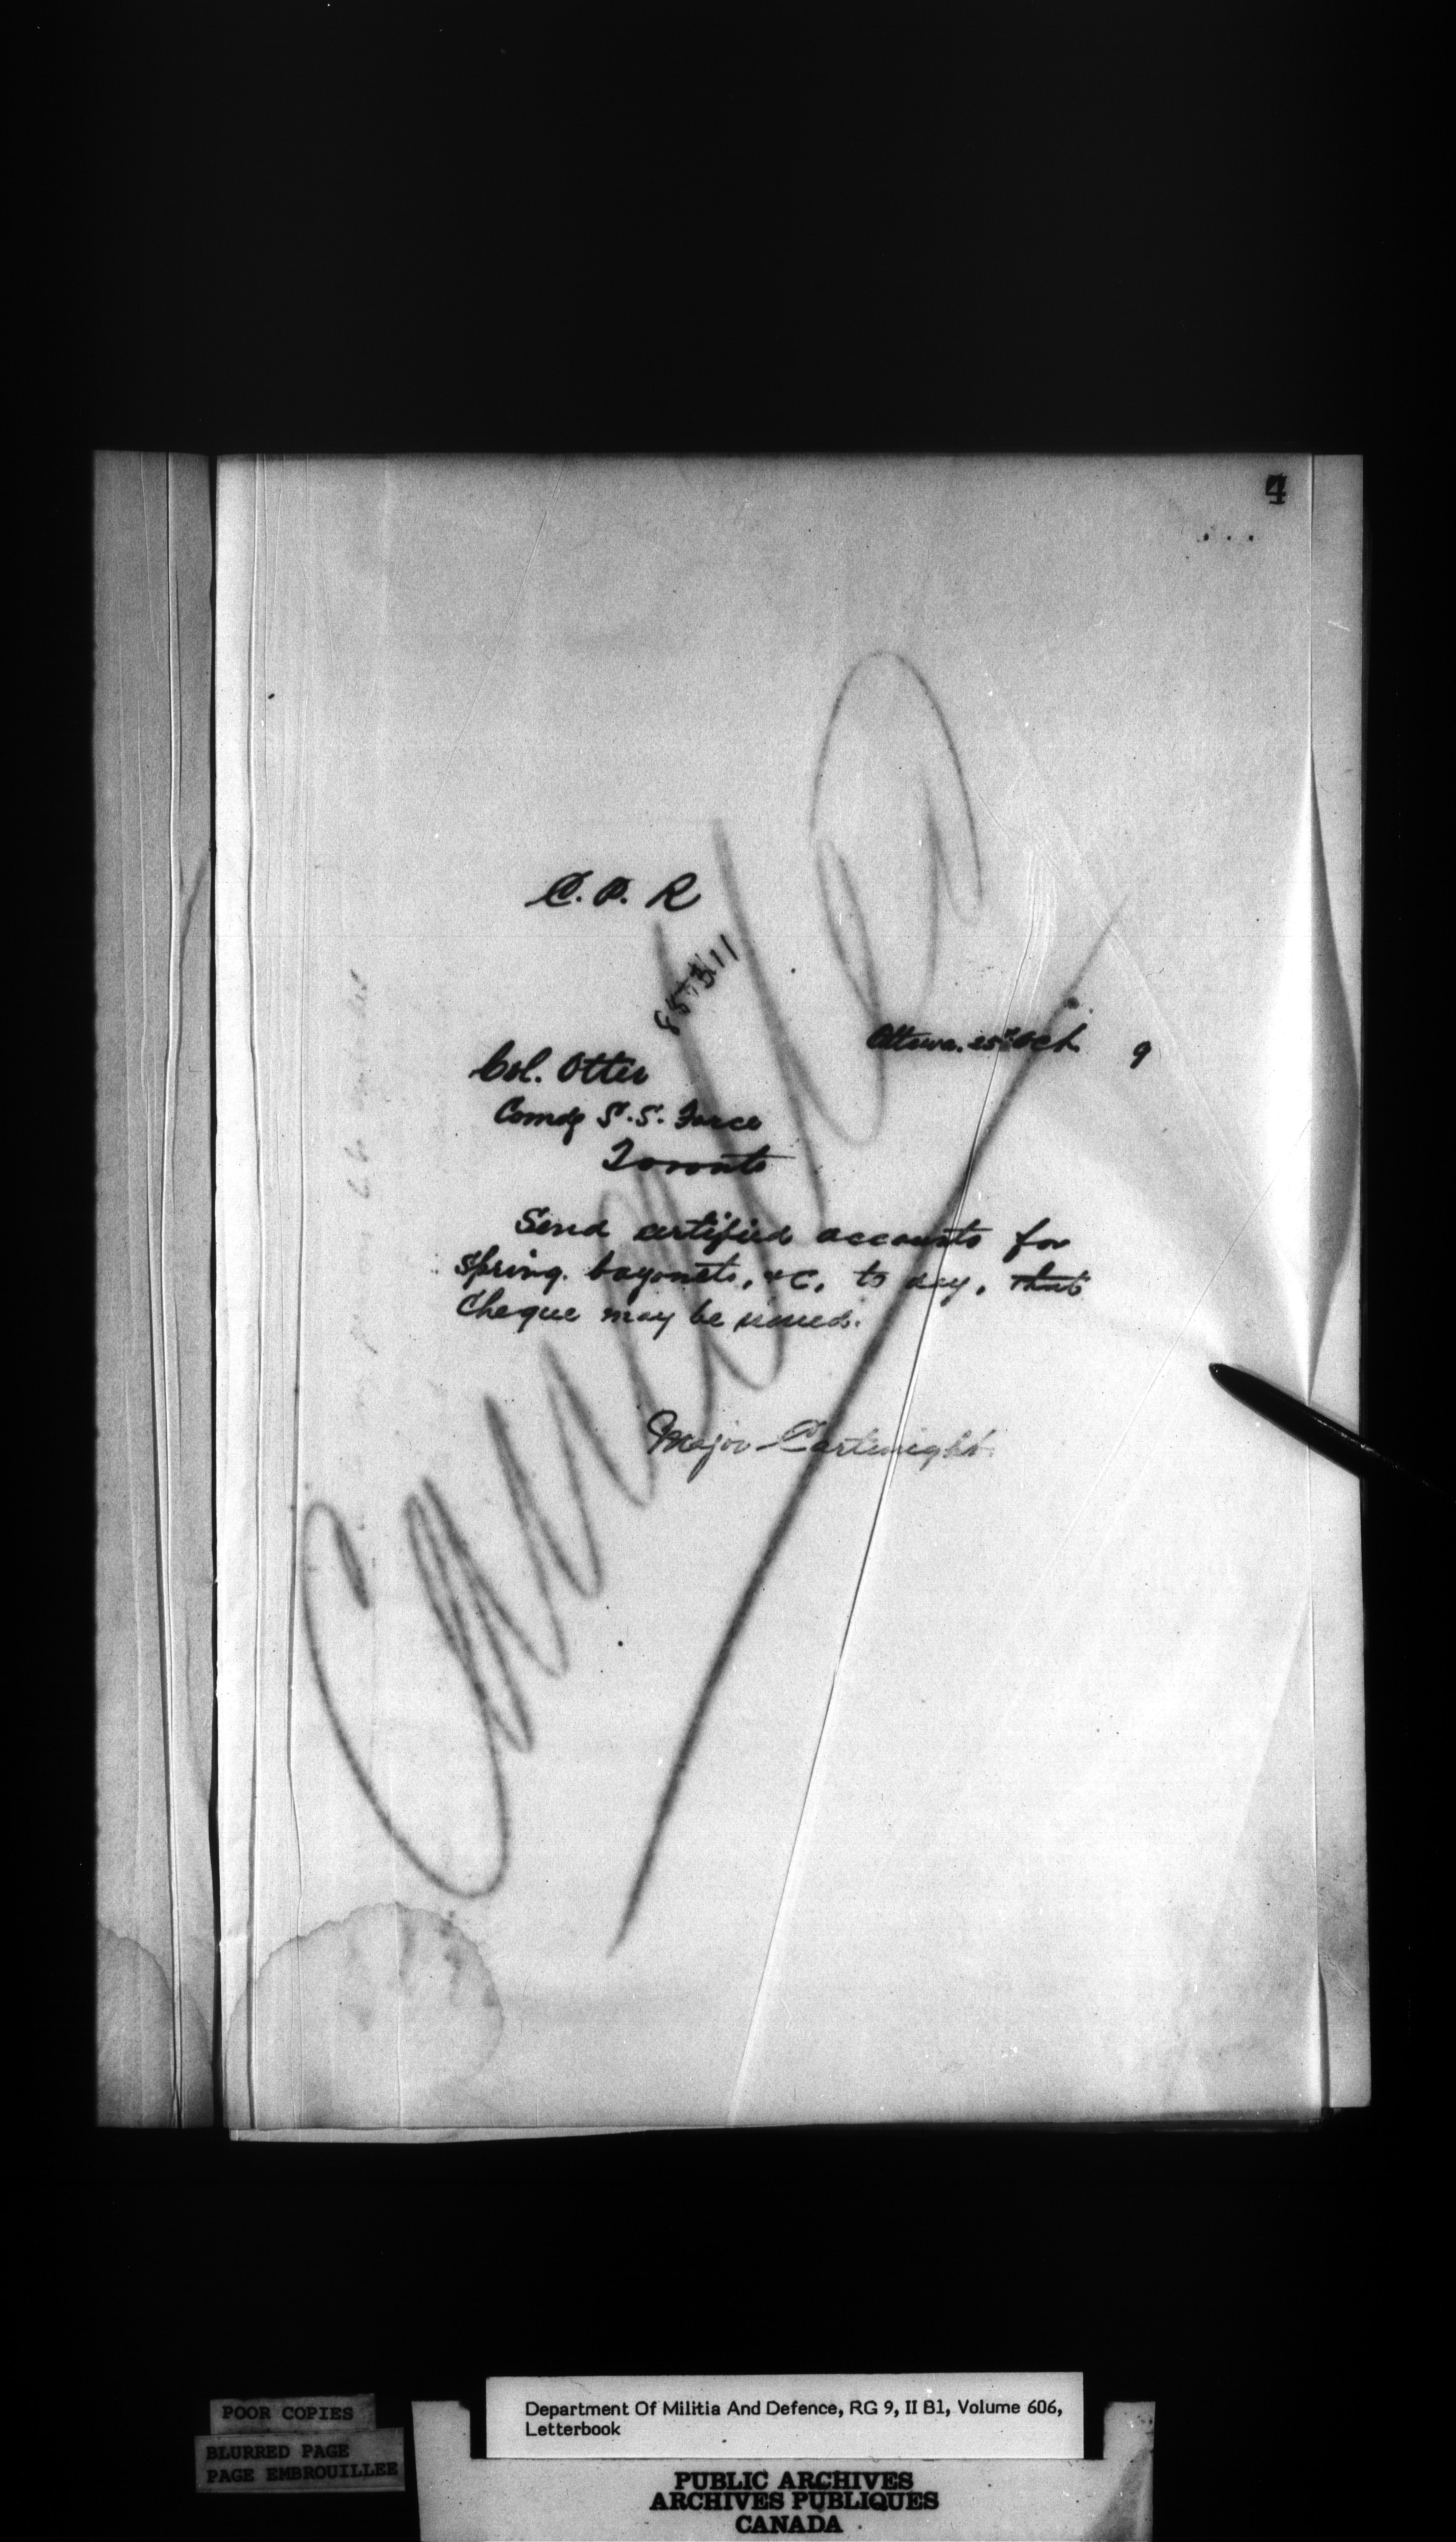 4
C. P. R
85311
Ottawa. 25th Oct. 9
Col. Otter
Comdg S. S. Force
Toronto
Send certified accounts for
spring. bayonets, &c, to day, that
Cheque may be issued.
Major Cartwright.
Cancelled
POOR COPIES
BLURRED PAGE
PAGE EMBROUILLEE
Department Of Militia And Defence, RG 9, II B1, Volume 606,
Letterbook
PUBLIC ARCHIVES
ARCHIVES PUBLIQUES
CANADA